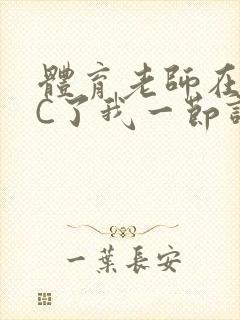 體育老師在
C了我一節
一葉長安